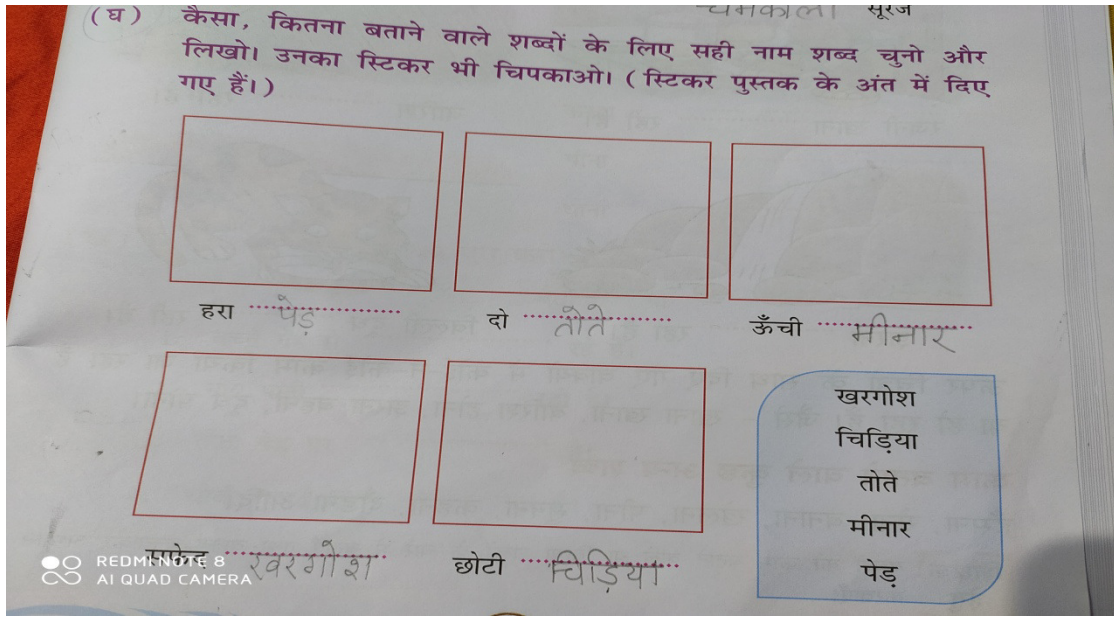 चमकीला सूरज
(घ) कैसा, कितना बताने वाले शब्दों के लिए सही नाम शब्द चुनो और
लिखो। उनका स्टिकर भी चिपकाओ। (स्टिकर पुस्तक के अंत में दिए
गए हैं।)
हरा पेड़
दो तोते
ऊँची मीनार
सफेद खरगोश
छोटी चिड़िया
खरगोश
चिड़िया
तोते
मीनार
पेड़
REDMI NOTE 8
AI QUAD CAMERA